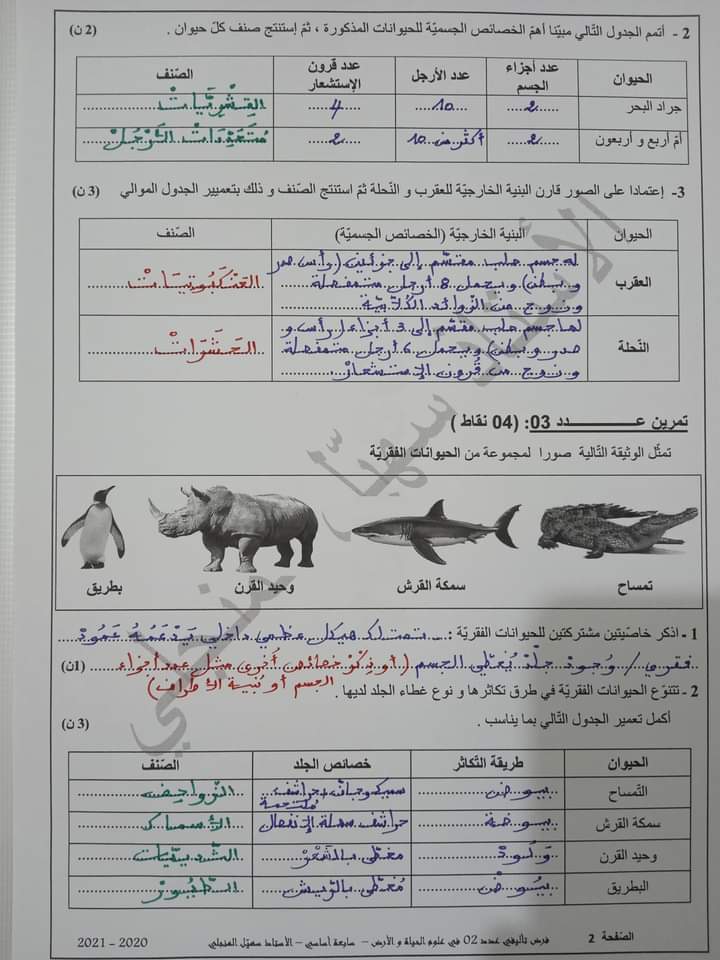 2 - أتمم الجدول التّالي مبيّنا أهمّ الخصائص الجسميّة للحيوانات المذكورة ، ثمّ إستنتج صنف كلّ حيوان . (2 ن)
الحيوان عدد أجزاء الجسم عدد الأرجل عدد قرون الإستشعار الصّنف
جراد البحر 2 10 4 القِشْرِيَّاتْ
أمّ أربع و أربعون 2 أكثر من 10 2 مُتَعَدِّدَاتْ الأَرْجُلْ
3- إعتمادا على الصور قارن البنية الخارجيّة للعقرب و النّحلة ثمّ استنتج الصّنف و ذلك بتعميير الجدول الموالي (3 ن)
الحيوان البنية الخارجيّة (الخصائص الجسميّة) الصّنف
العقرب له جسم صلب مقسّم إلى جزأين (رأس صدر
و بطن) و يحمل 8 أرجل متمفصلة العَنْكَبُوتِيَاتْ
و زوج من الزّوائد الكُلاّبيّة
النّحلة لها جسم صلب مقسّم إلى 3 أجزاء (رأس و
صدر و بطن) و يحمل 6 أرجل متمفصلة الحَشَرَاتْ
و زوج من قُرون الإستشعار
تمرين عـــــــدد 03: (04 نقاط )
تمثّل الوثيقة التّالية صورا لمجموعة من الحيوانات الفقريّة
تمساح سمكة القرش وحيد القرن بطريق
1 - اذكر خاصيتين مشتركتين للحيوانات الفقريّة : تمتلك هيكل عظمي داخلي يَدْعَمُهُ عَمُودْ
فقري / وُجودْ جلْدْ يُغطّي الجسم (أو ذِكْرْ خصائص أخرى مثل عدد أجزاء (1ن)
الجسم أو بُنية الأطراف)
2 - تتنوّع الحيوانات الفقريّة في طرق تكاثرها و نوع غطاء الجلد لديها .
أكمل تعمير الجدول التّالي بما يناسب . (3 ن)
الحيوان طريقة التّكاثر خصائص الجلد الصّنف
التّمساح بيوض سميك و جاف و حراشف ملتحمة الزّواحِفْ
سمكة القرش بيوضة حراشف سهلة الإنفصال الأسماك
وحيد القرن وَلُودْ مغطّى بالشَّعْرْ الثّدييّات
البطريق بيُوضْ مُغَطّى بالرّيش الطّيورْ
الصّفحة 2 فرض تأليفي عدد 02 في علوم الحياة و الأرض – سابعة أساسي – الأستاذ سهيّل المنجلي 2020 - 2021
الأستاذ سهيّل المنجلي